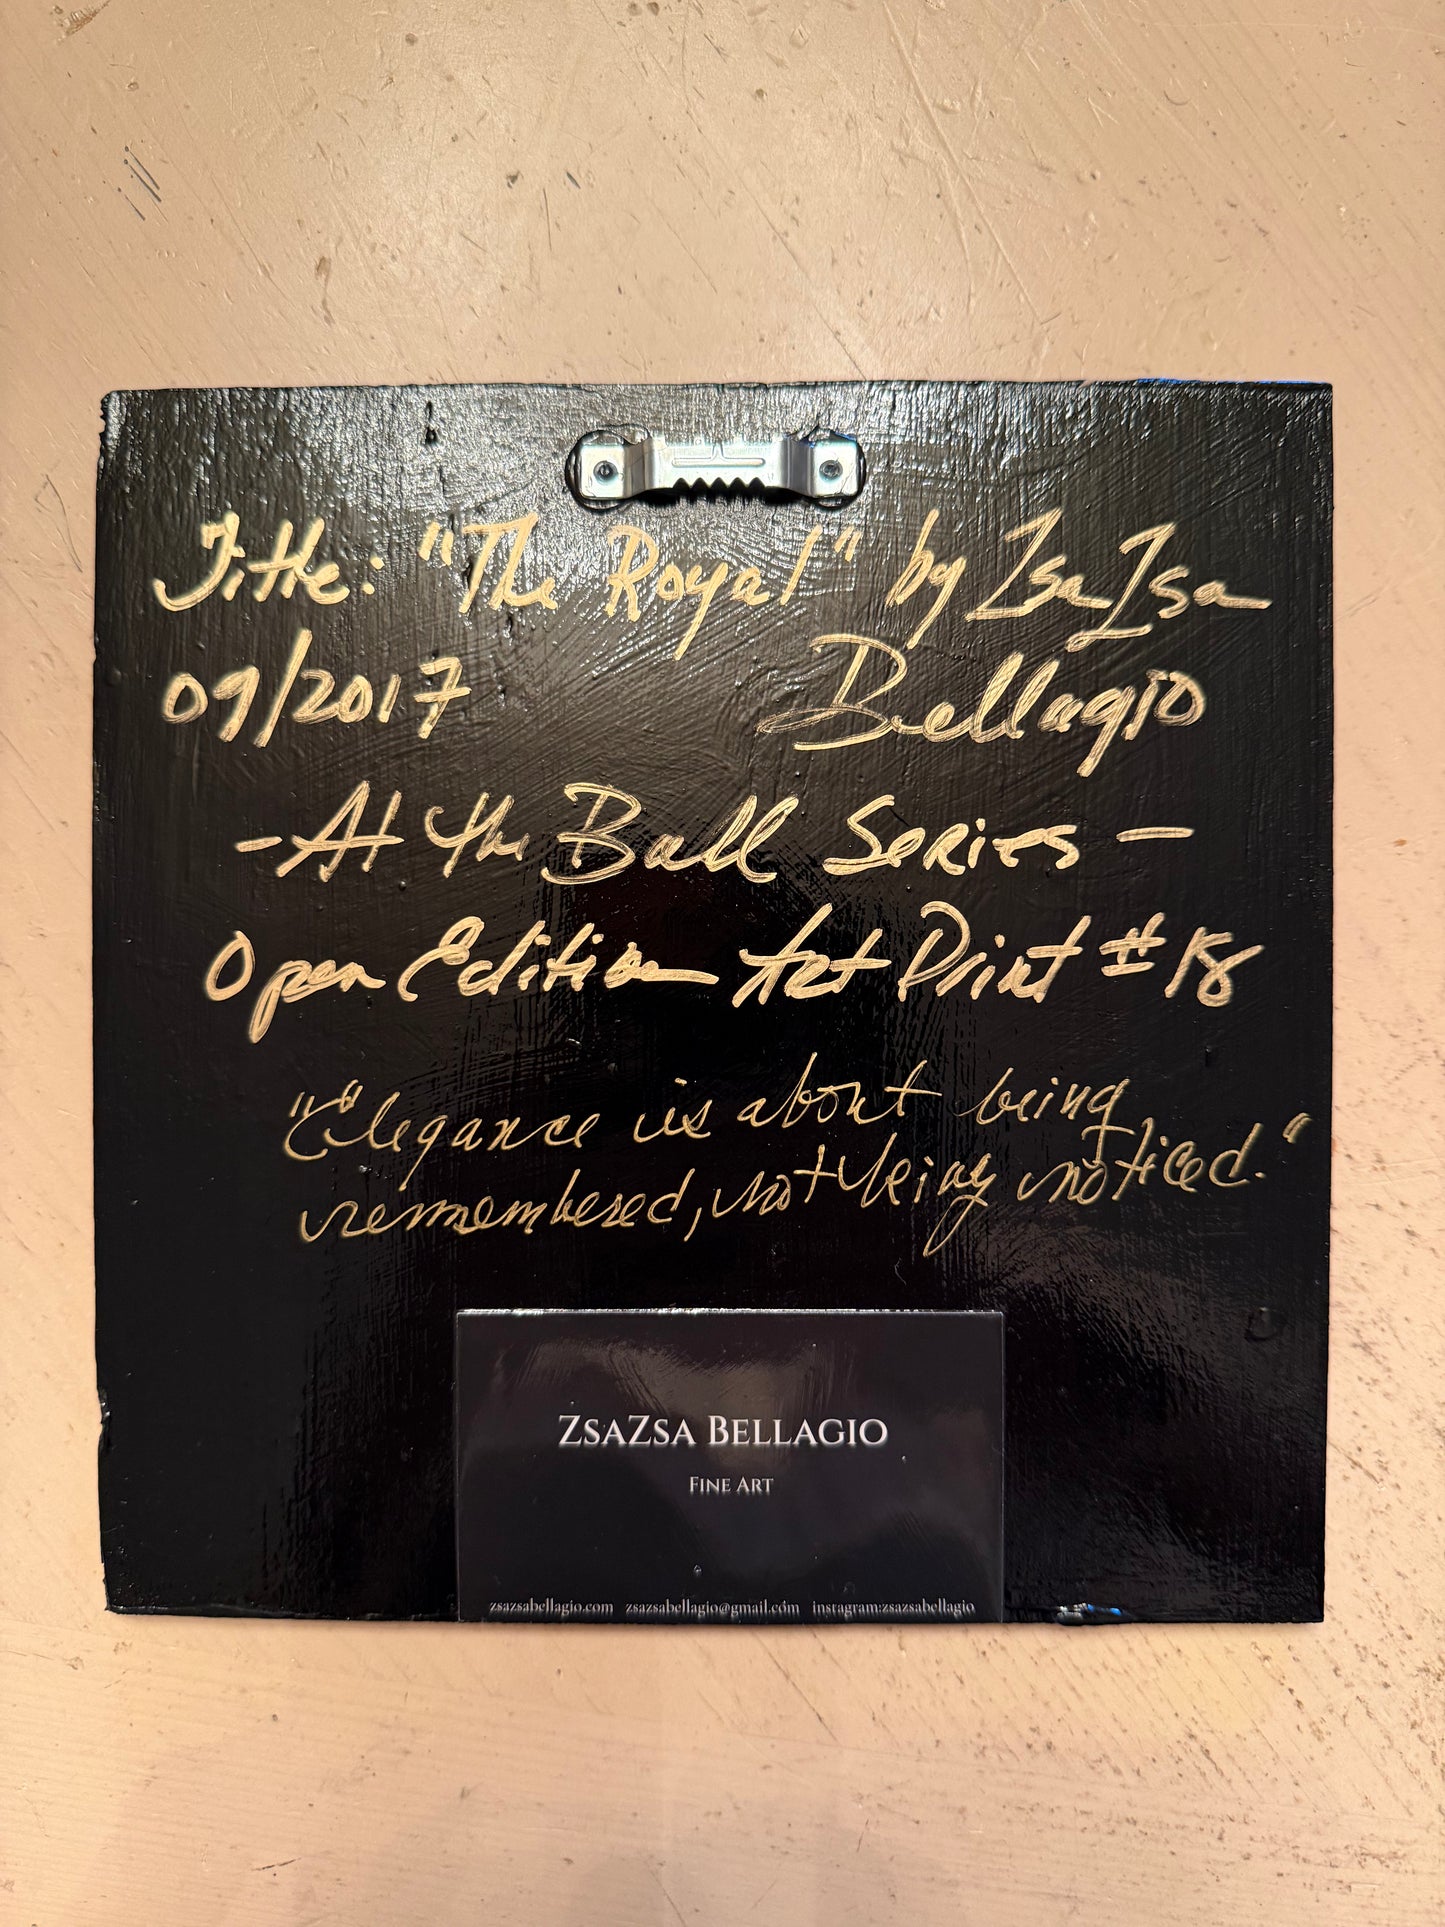 Title: "The Royal" by ZsaZsa
09/2017 Bellagio
- At the Ball Series -
Open Edition Art Print #18
"Elegance is about being
remembered, not being noticed."
ZsaZsa Bellagio
Fine Art
zsazsabellagio.com zsazsabellagio@gmail.com instagram:zsazsabellagio